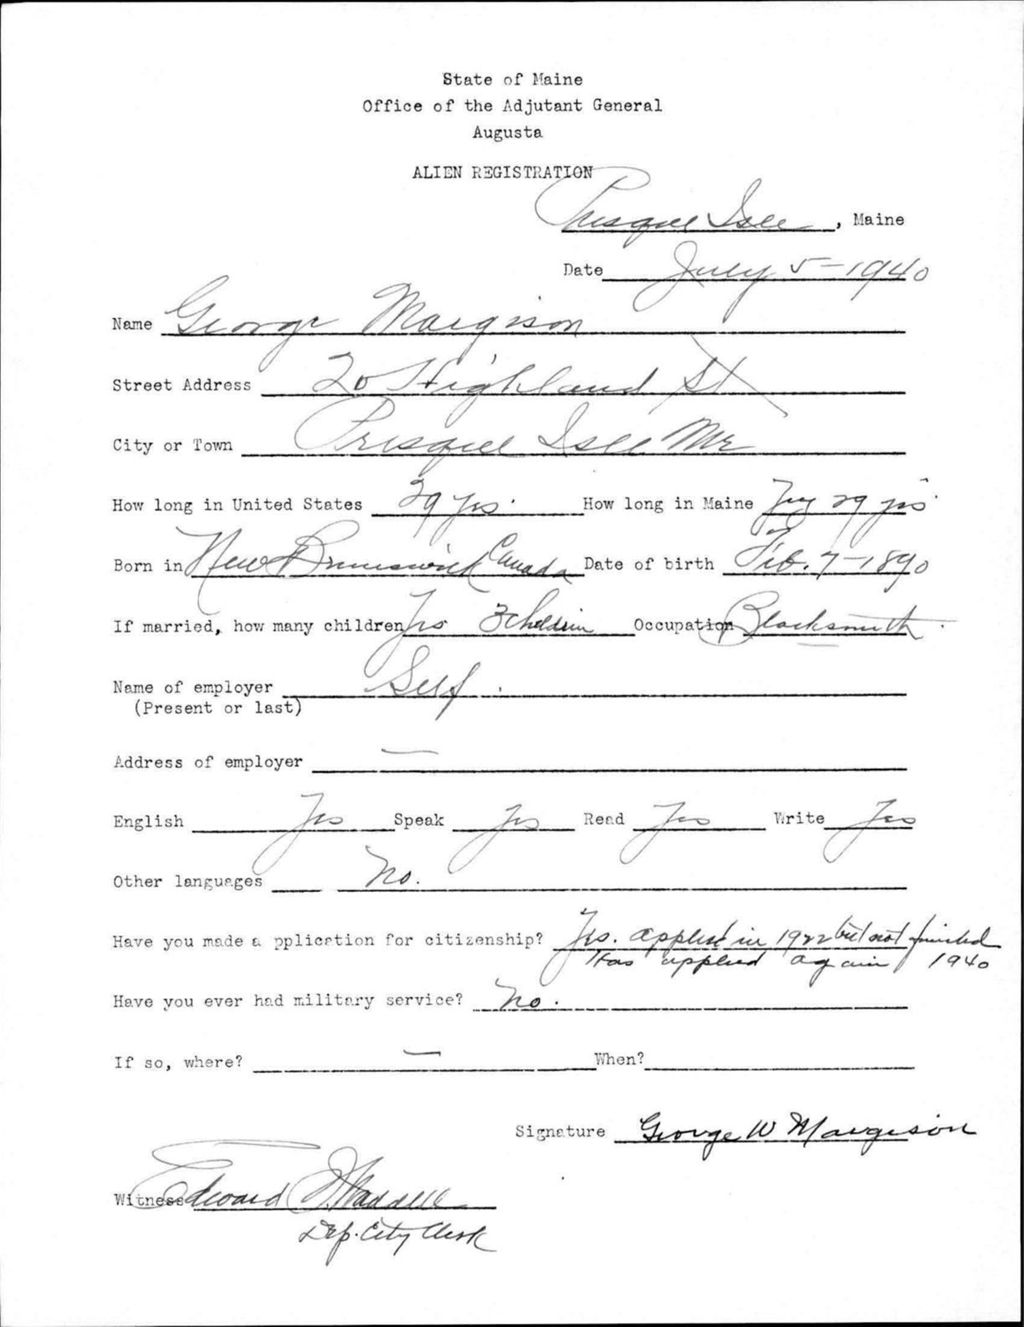 State of Maine
Office of the Adjutant General
Augusta
ALIEN REGISTRATION
Presque Isle, Maine
Date July 5-1940
Name George Margison
Street Address 20 Highland St
City or Town Presque Isle Me
How long in United States 29 yrs. How long in Maine 29 yrs
Born in New Brunswick Canada Date of birth Feb. 7-1890
If married, how many children Yes 3 Children Occupation Blacksmith
Name of employer Self.
(Present or last)
Address of employer —
English Yes Speak Yes Read Yes Write Yes
Other languages No.
Have you made a pplication for citizenship? Yes. applied in 1922 but not finished
Has applied again 1940
Have you ever had military service? No.
If so, where? — When?
Signature George W Margison
Witness Edward
Dep. City Clerk